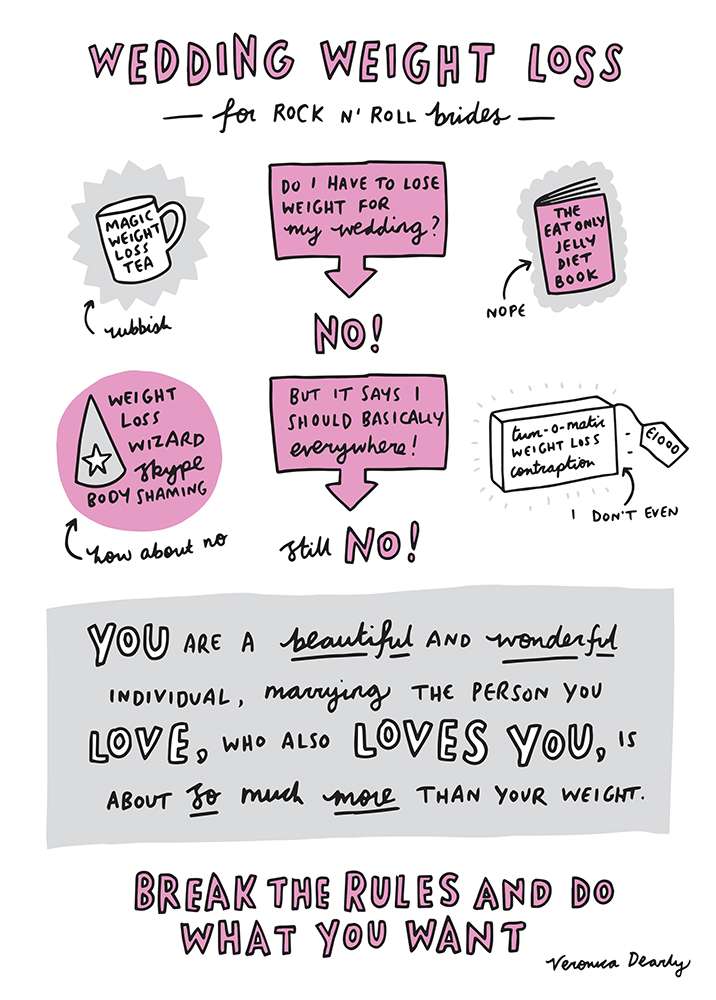 WEDDING WEIGHT LOSS
— for ROCK N' ROLL brides —
MAGIC
WEIGHT
LOSS
TEA
rubbish
DO I HAVE TO LOSE
WEIGHT FOR
my wedding?
NO!
THE
EAT ONLY
JELLY
DIET
BOOK
NOPE
WEIGHT
LOSS
WIZARD
Skype
BODY SHAMING
how about no
BUT IT SAYS I
SHOULD BASICALLY
everywhere!
still NO!
tum-o-matic
WEIGHT LOSS
contraption
£1000
I DON'T EVEN
YOU ARE A beautiful AND wonderful
INDIVIDUAL, marrying THE PERSON YOU
LOVE, WHO ALSO LOVES YOU, IS
ABOUT so much more THAN YOUR WEIGHT.
BREAK THE RULES AND DO
WHAT YOU WANT
Veronica Dearly